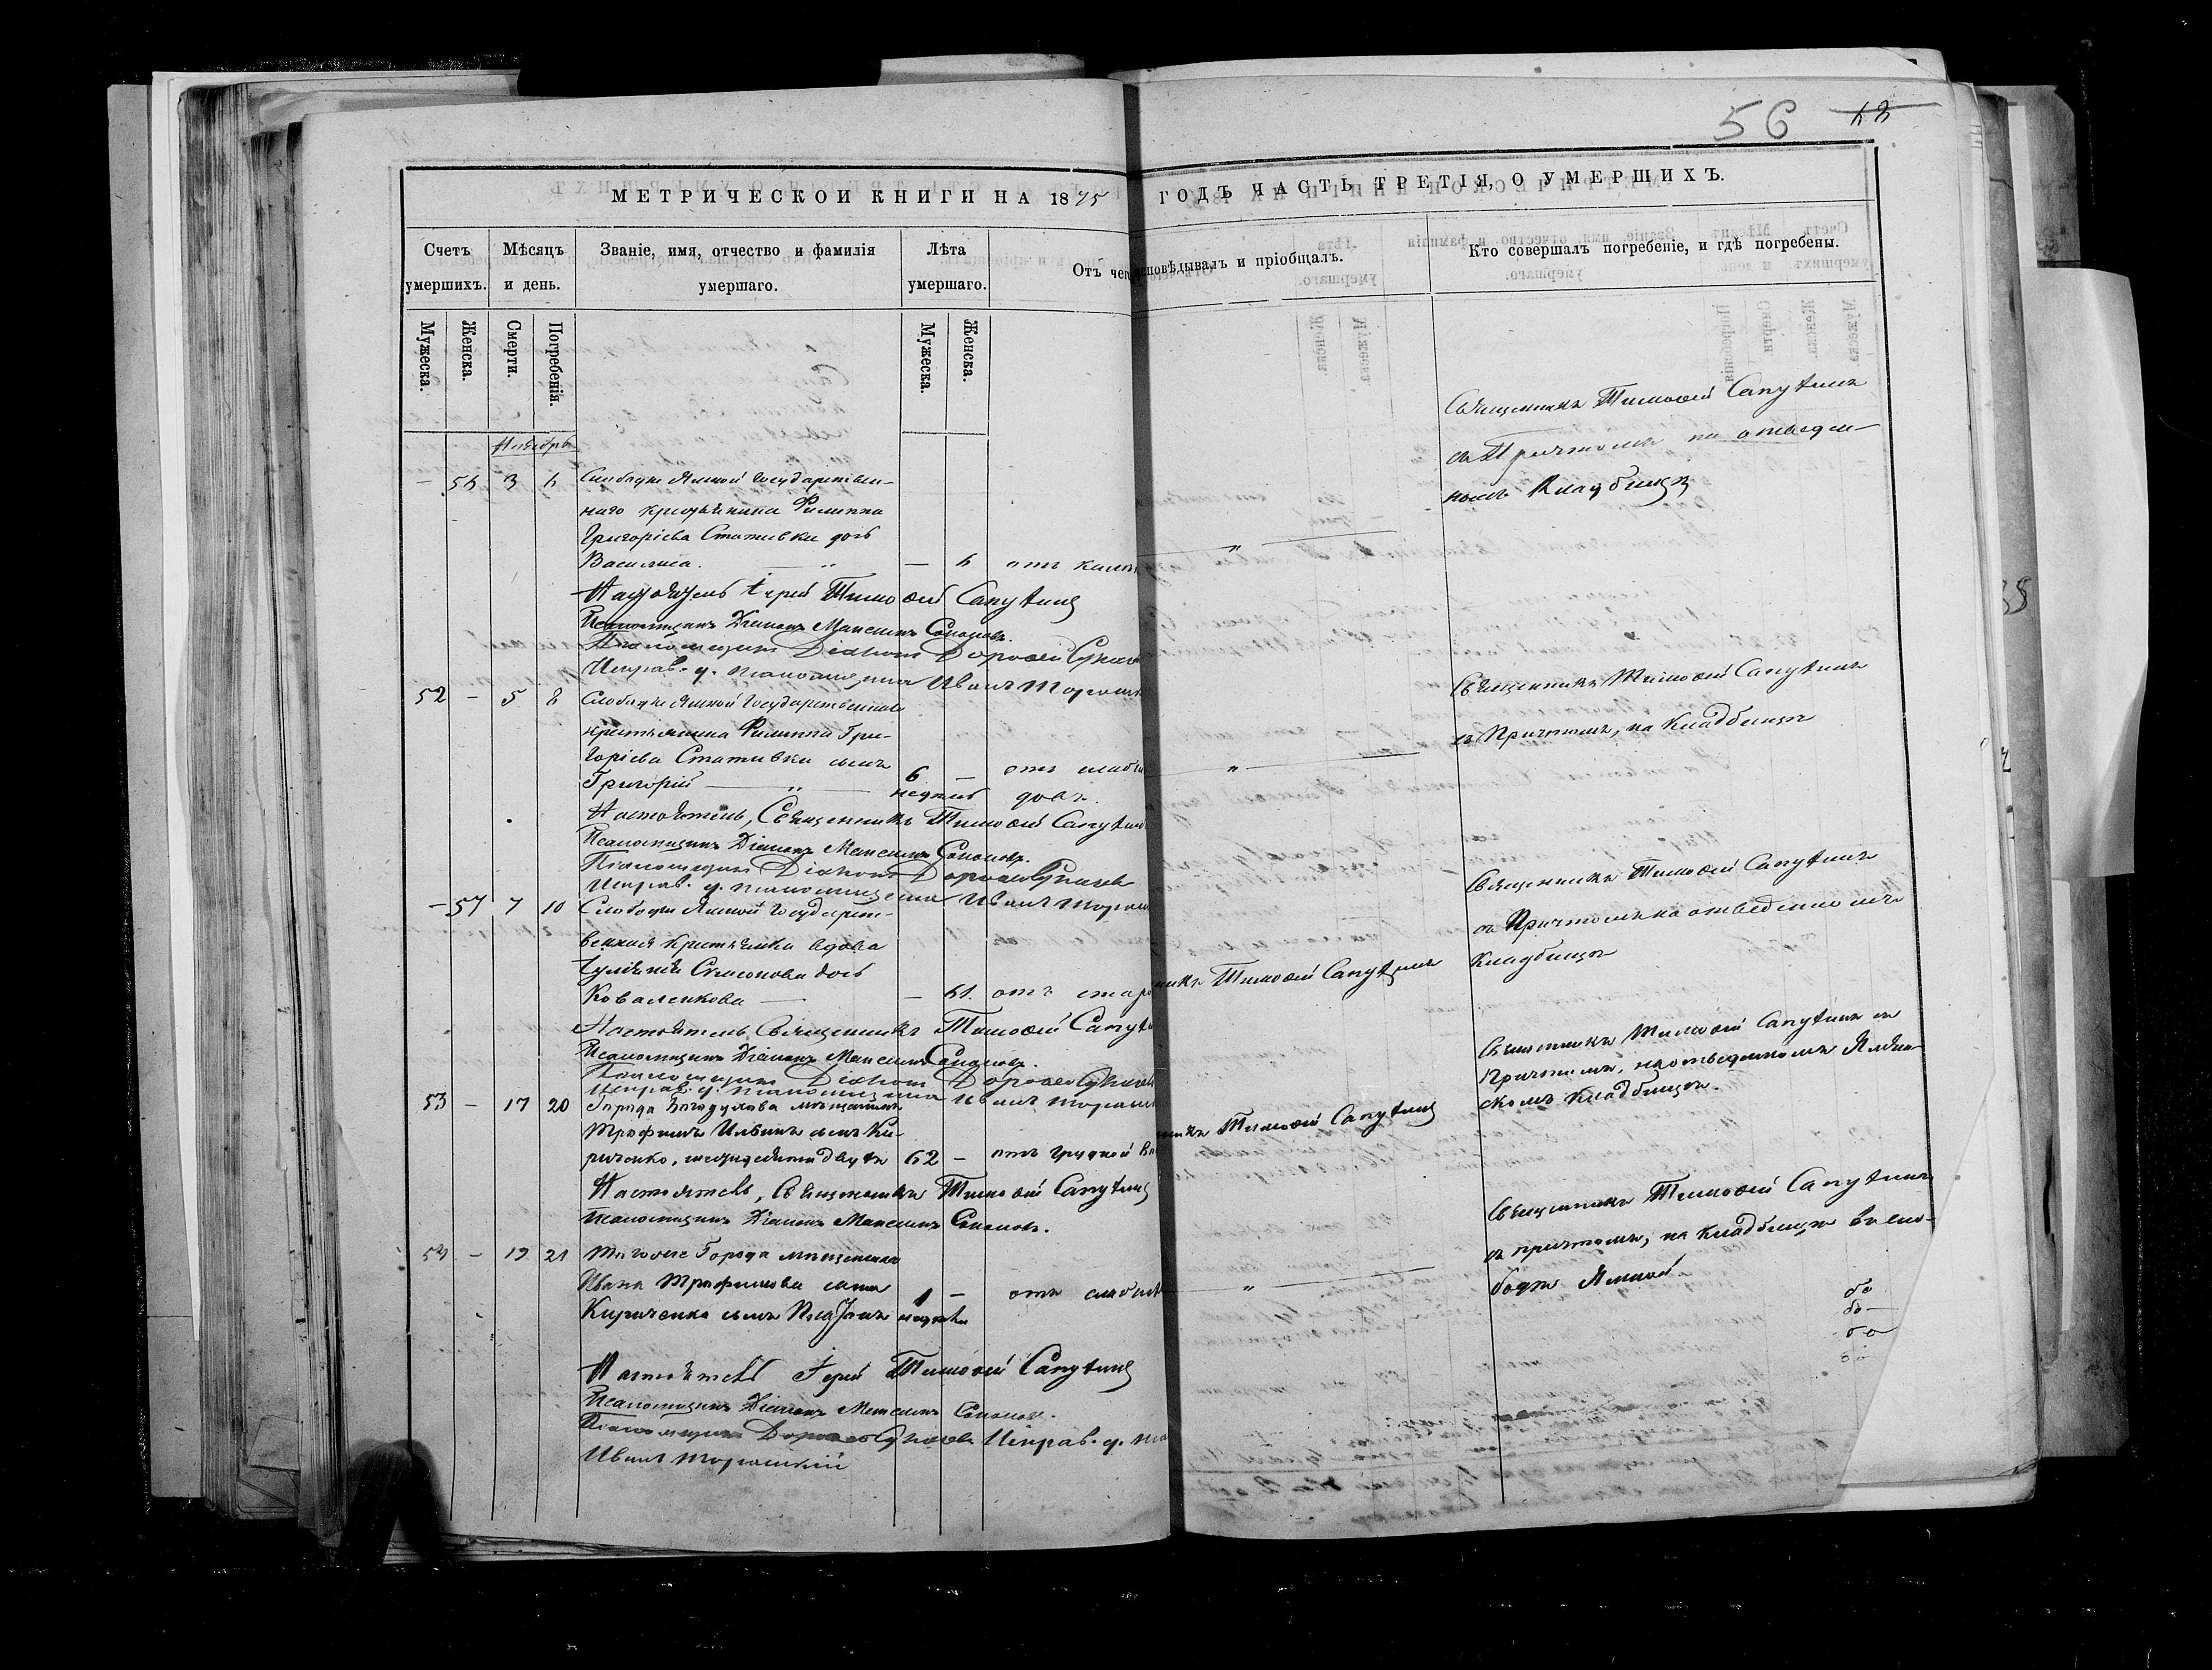 56 48
МЕТРИЧЕСКОЙ КНИГИ НА 1875 ГОДЪ ЧАСТЬ ТРЕТІЯ, О УМЕРШИХЪ.
Счетъ умершихъ.
Мѣсяцъ и день.
Званіе, имя, отчество и фамилія умершаго.
Лѣта умершаго.
Отъ чего исповѣдывалъ и пріобщалъ.
Кто совершалъ погребеніе, и гдѣ погребены.
Мужеска.
Женска.
Смерти.
Погребенія.
Мужеска.
Женска.
Ноябрь
— 56 3 6 Слободы Ямной Государствен-
наго крестьянина Филиппа
Григоріева Стативки дочь
Василиса. — „ — 6 отъ
Священникъ Тимоѳей Сапухинъ
съ Причтомъ на отведен-
номъ Кладбищѣ
Настоятель Іерей Тимоѳей Сапухинъ
Псаломщикъ Діаконъ Максимъ
Псаломщикъ Діаконъ Дороѳей
Исправ. д. псаломщика Иванъ
52 — 5 8 Слободы Ямной Государственнаго
крестьянина Филиппа Гри-
горіева Стативки сынъ
Григорій — „ — 6 недѣль — отъ слаб
Священникъ Тимоѳей Сапухинъ
съ Причтомъ, на Кладбищѣ
Настоятель, Священникъ Тимоѳей Сапухинъ
Псаломщикъ Діаконъ Максимъ
Псаломщикъ Діаконъ Дороѳей
Исправ. д. псаломщика Иванъ
— 57 7 10 Слободы Ямной Государст-
венная крестьянка вдова
Симонова дочь
Коваленкова — — 61. отъ старо
никъ Тимоѳей Сапухинъ
Священникъ Тимоѳей Сапухинъ
съ Причтомъ на отведенномъ
Кладбищѣ
Настоятель, Священникъ Тимоѳей Сапухинъ
Псаломщикъ Діаконъ Максимъ
Псаломщикъ Діаконъ Дороѳей
Исправ. д. псаломщика Иванъ
53 — 17 20 Города Богодухова мѣщанинъ
Трофимъ Ильинъ сынъ Ки-
риченко, шестидесяти двухъ 62 — отъ грудной
никъ Тимоѳей Сапухинъ
Священникъ Тимоѳей Сапухинъ съ
Причтомъ, на отведенномъ Ямен-
скомъ Кладбищѣ.
Настоятель, Священникъ Тимоѳей Сапухинъ
Псаломщикъ Діаконъ Максимъ
54 — 19 21 Тогоже Города мѣщанина
Ивана Трофимова сына
Кириченка сынъ Платонъ 1 недѣли — отъ слабости
— „ —
Священникъ Тимоѳей Сапухинъ
съ причтомъ, на кладбищѣ въ сло-
бодѣ Ямной.
Настоятель Іерей Тимоѳей Сапухинъ
Псаломщикъ Діаконъ Максимъ
Псаломщикъ Дороѳей Исправ. д.
Иванъ